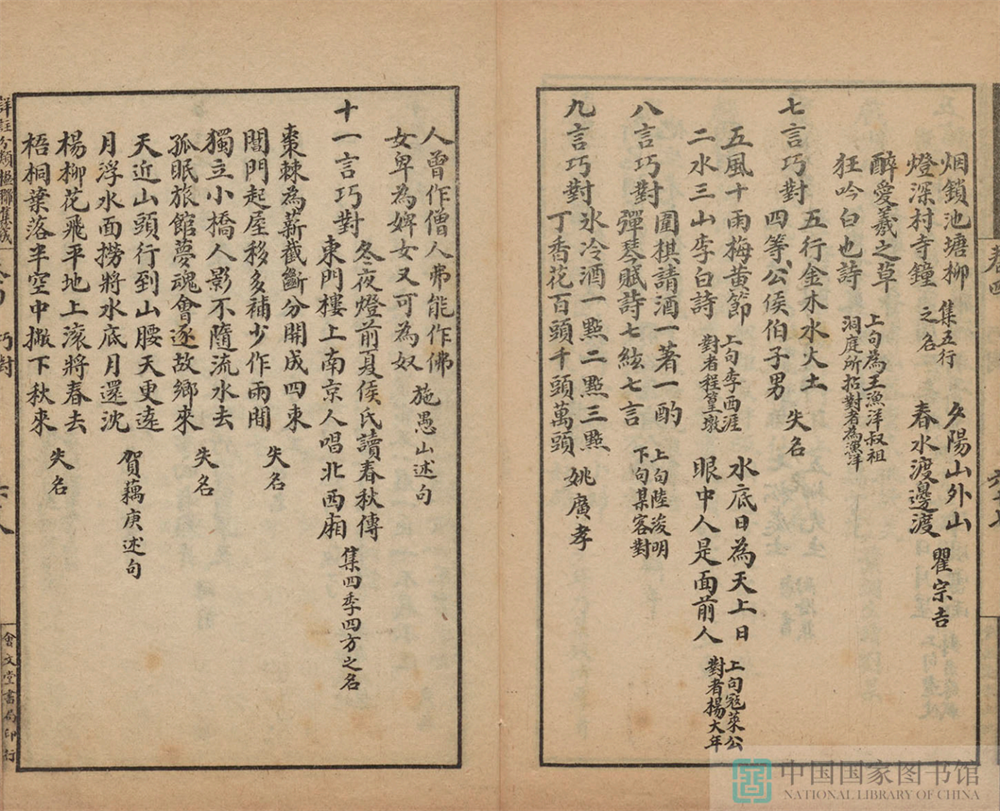 烟鎖池塘柳
燈深村寺鐘
集五行
之名
夕陽山外山
春水渡邊渡
瞿宗吉
醉愛羲之草
狂吟白也詩
上句為王漁洋叔祖
洞庭所拈對者為漁洋
七言巧對
五行金木水火土
四等公侯伯子男
失名
五風十雨梅黃節
二水三山李白詩
上句李西涯
對者程篁墩
水底日為天上日
眼中人是面前人
上句寇萊公
對者楊大年
八言巧對
圍棋請酒一著一酌
彈琴賦詩七絃七言
上句陸浚明
下句某客對
九言巧對
氷冷酒一點二點三點
丁香花百頭千頭萬頭
姚廣孝
人曾作僧人弗能作佛
女卑為婢女又可為奴
施愚山述句
十一言巧對
冬夜燈前夏侯氏讀春秋傳
東門樓上南京人唱北西廂
集四季四方之名
棗棘為薪截斷分開成四束
閭門起屋移多補少作兩間
失名
獨立小橋人影不隨流水去
孤眠旅館夢魂會逐故鄉來
失名
天近山頭行到山腰天更遠
月浮水面撈將水底月還沈
賀藕庚述句
楊柳花飛平地上滾將春去
梧桐葉落半空中撇下秋來
失名
巧對
會文堂書局印行
中国国家图书馆
NATIONAL LIBRARY OF CHINA